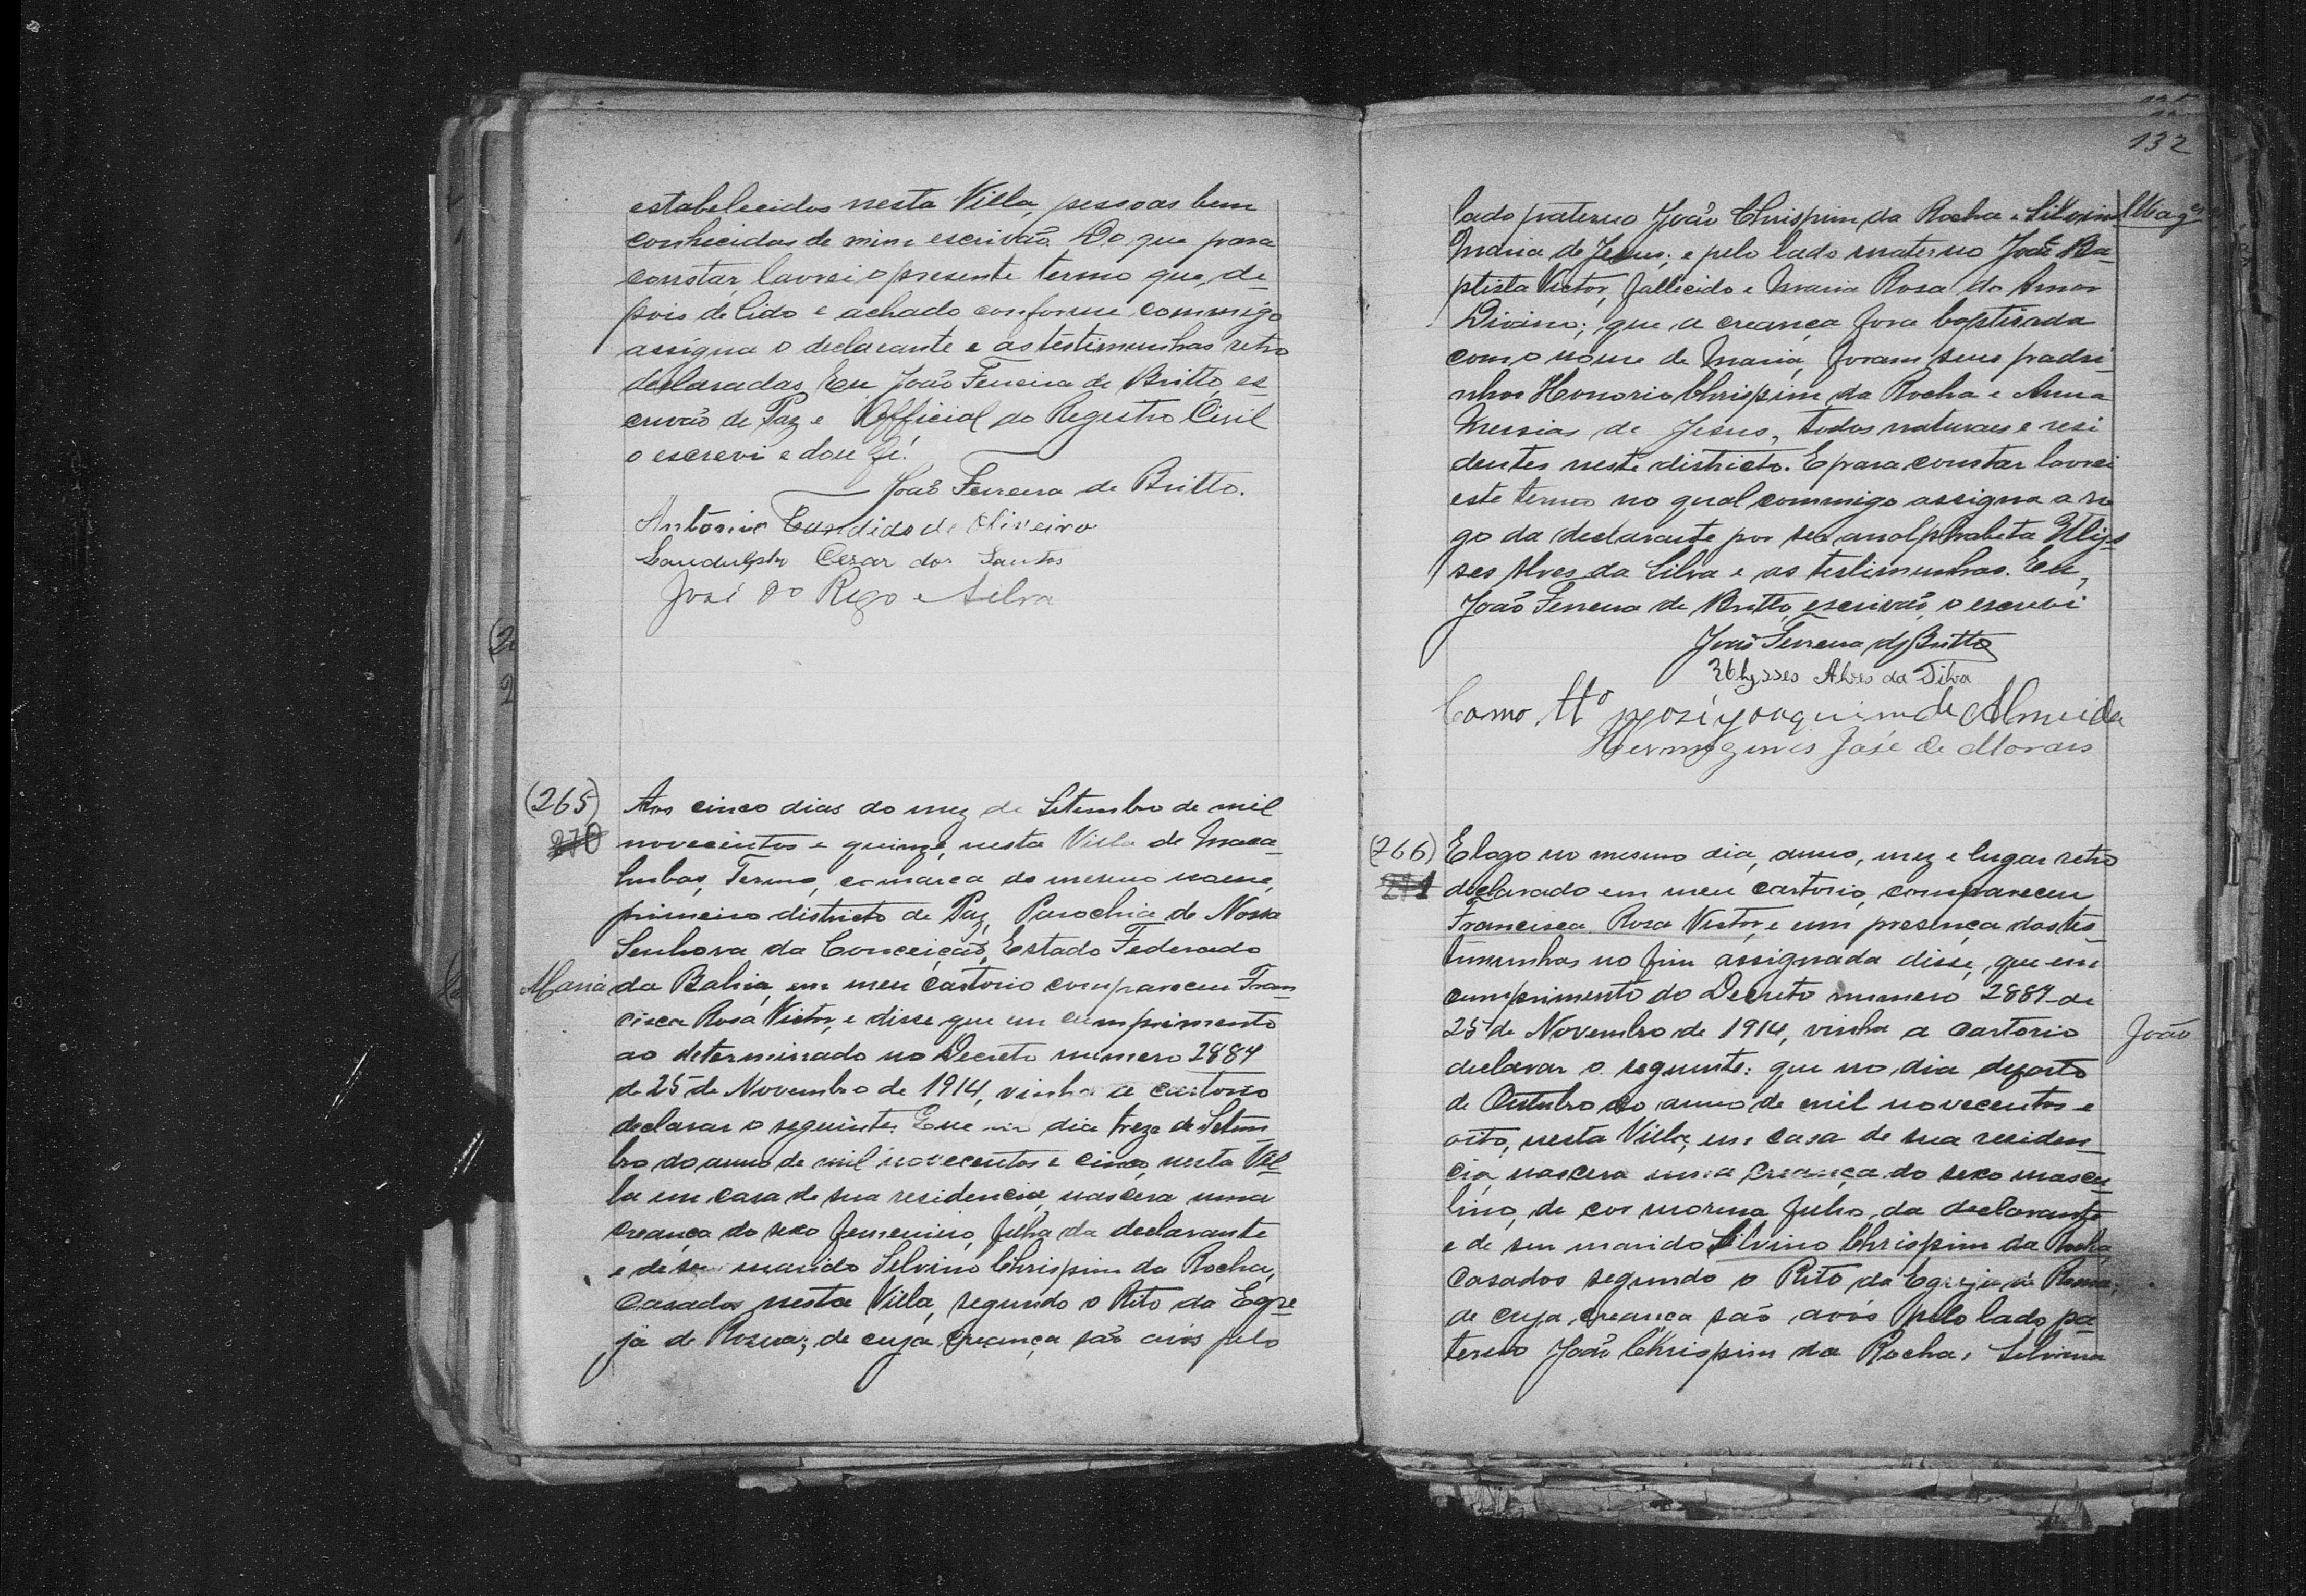 estabelecidos nesta Villa, pessoas bem
conhecidas de mim escrivão. Do que para
constar, lavrei o presente termo que, de-
pois de lido e achado conforme commigo
assigna o declarante e as testimunhas retro
declaradas. Eu João Ferreira de Britto, es-
crivão de Paz e Official do Registro Civil
o escrevi e dou fé.
João Ferreira de Britto.
Antonio Candido de Oliveira
Landulpho Cezar dos Santos
José do Rego e Silva
(265)
270
Aos cinco dias do mez de Setembro de mil
novecentos e quinze, nesta Villa de Maca-
hubas, Termo, comarca do mesmo nome,
primeiro districto de Paz, Parochia de Nossa
Senhora da Conceição, Estado Federado
Maria
da Bahia, em meu cartorio compareceu Fran-
cisca Rosa Victor, e disse que em cumprimento
ao determinado no Decreto numero 2884
de 25 de Novembro de 1914, vinha a cartorio
declarar o seguinte: Que no dia treze de Setem-
bro do anno de mil novecentos e cinco, nesta Vil-
la em casa de sua residencia, nascera uma
creança do sexo femenino, filha da declarante
e de seu marido Silvino Chrispim da Rocha,
casados nesta Villa, segundo o Rito da Egre-
ja de Roma; de cuja creança são avós pelo
132
lado paterno João Chrispim da Rocha e Silvina
Maria de Jesus; e pelo lado materno João Ba-
ptista Victor, fallecido e Maria Rosa do Amor
Divino; que a creança fora baptisada
com o nome de Maria, foram seus padri-
nhos Honorio Chrispim da Rocha e Anna
Messias de Jesus, todos naturaes e resi
dentes neste districto. E para constar lavrei
este termo no qual commigo assigna a ro
go da declarante por ser analphabeta Ulys-
ses Alves da Silva e as testimunhas. Eu,
João Ferreira de Britto, escrivão, o escrevi
João Ferreira de Britto
Ulysses Alves da Silva
Como tt.º José Joaquim de Almeida
Hermogenes José de Moraes
(266)
271
E logo no mesmo dia, anno, mez e lugar retro
declarado em meu cartorio, compareceu
Francisca Rosa Victor, e em presença das tes-
timunhas no fim assignada disse, que em
cumprimento do Decreto numero 2884 de
25 de Novembro de 1914, vinha a cartorio
João
declarar o seguinte: que no dia
de Outubro do anno de mil novecentos e
oito, nesta Villa, em casa de sua residen-
cia, nascera uma creança do sexo mascu-
lino, de cor morena filho da declarante
e de seu marido Silvino Chrispim da Rocha,
casados segundo o Rito da Egreja de Roma;
de cuja creança são avós pelo lado pa-
terno João Chrispim da Rocha e Silvina